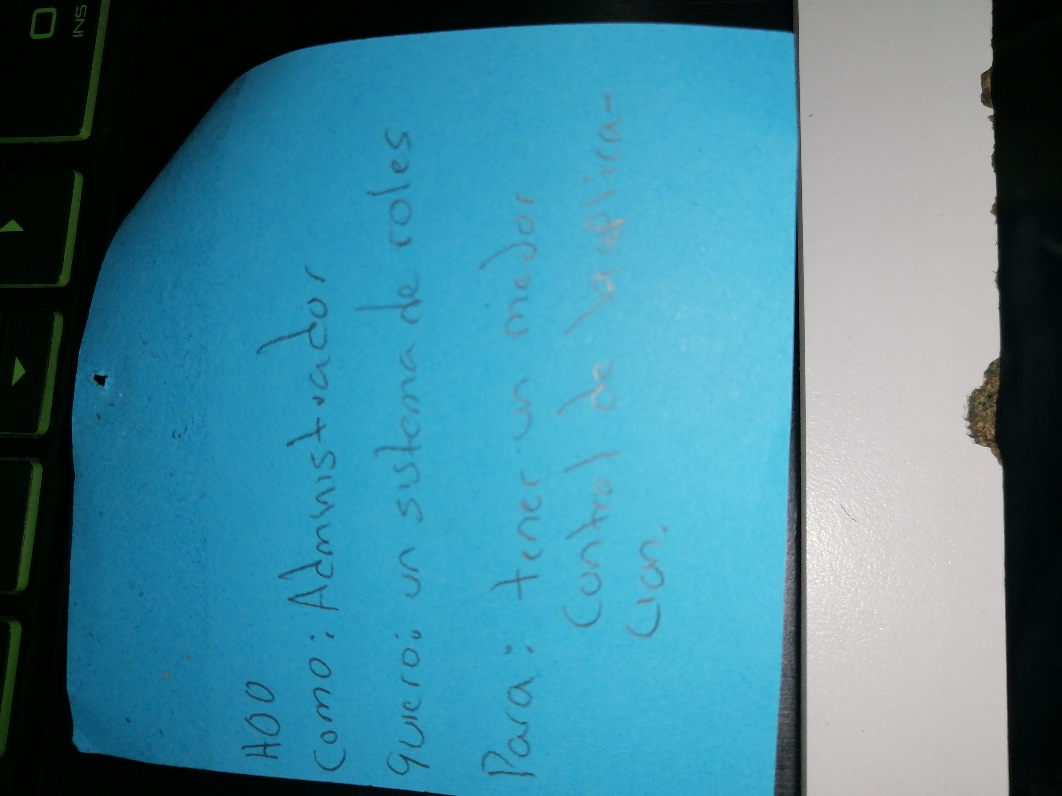 H00
Como: Administrador
quiero: un sistema de roles
Para: tener un mejor
Control de la aplica-
cion.
INS